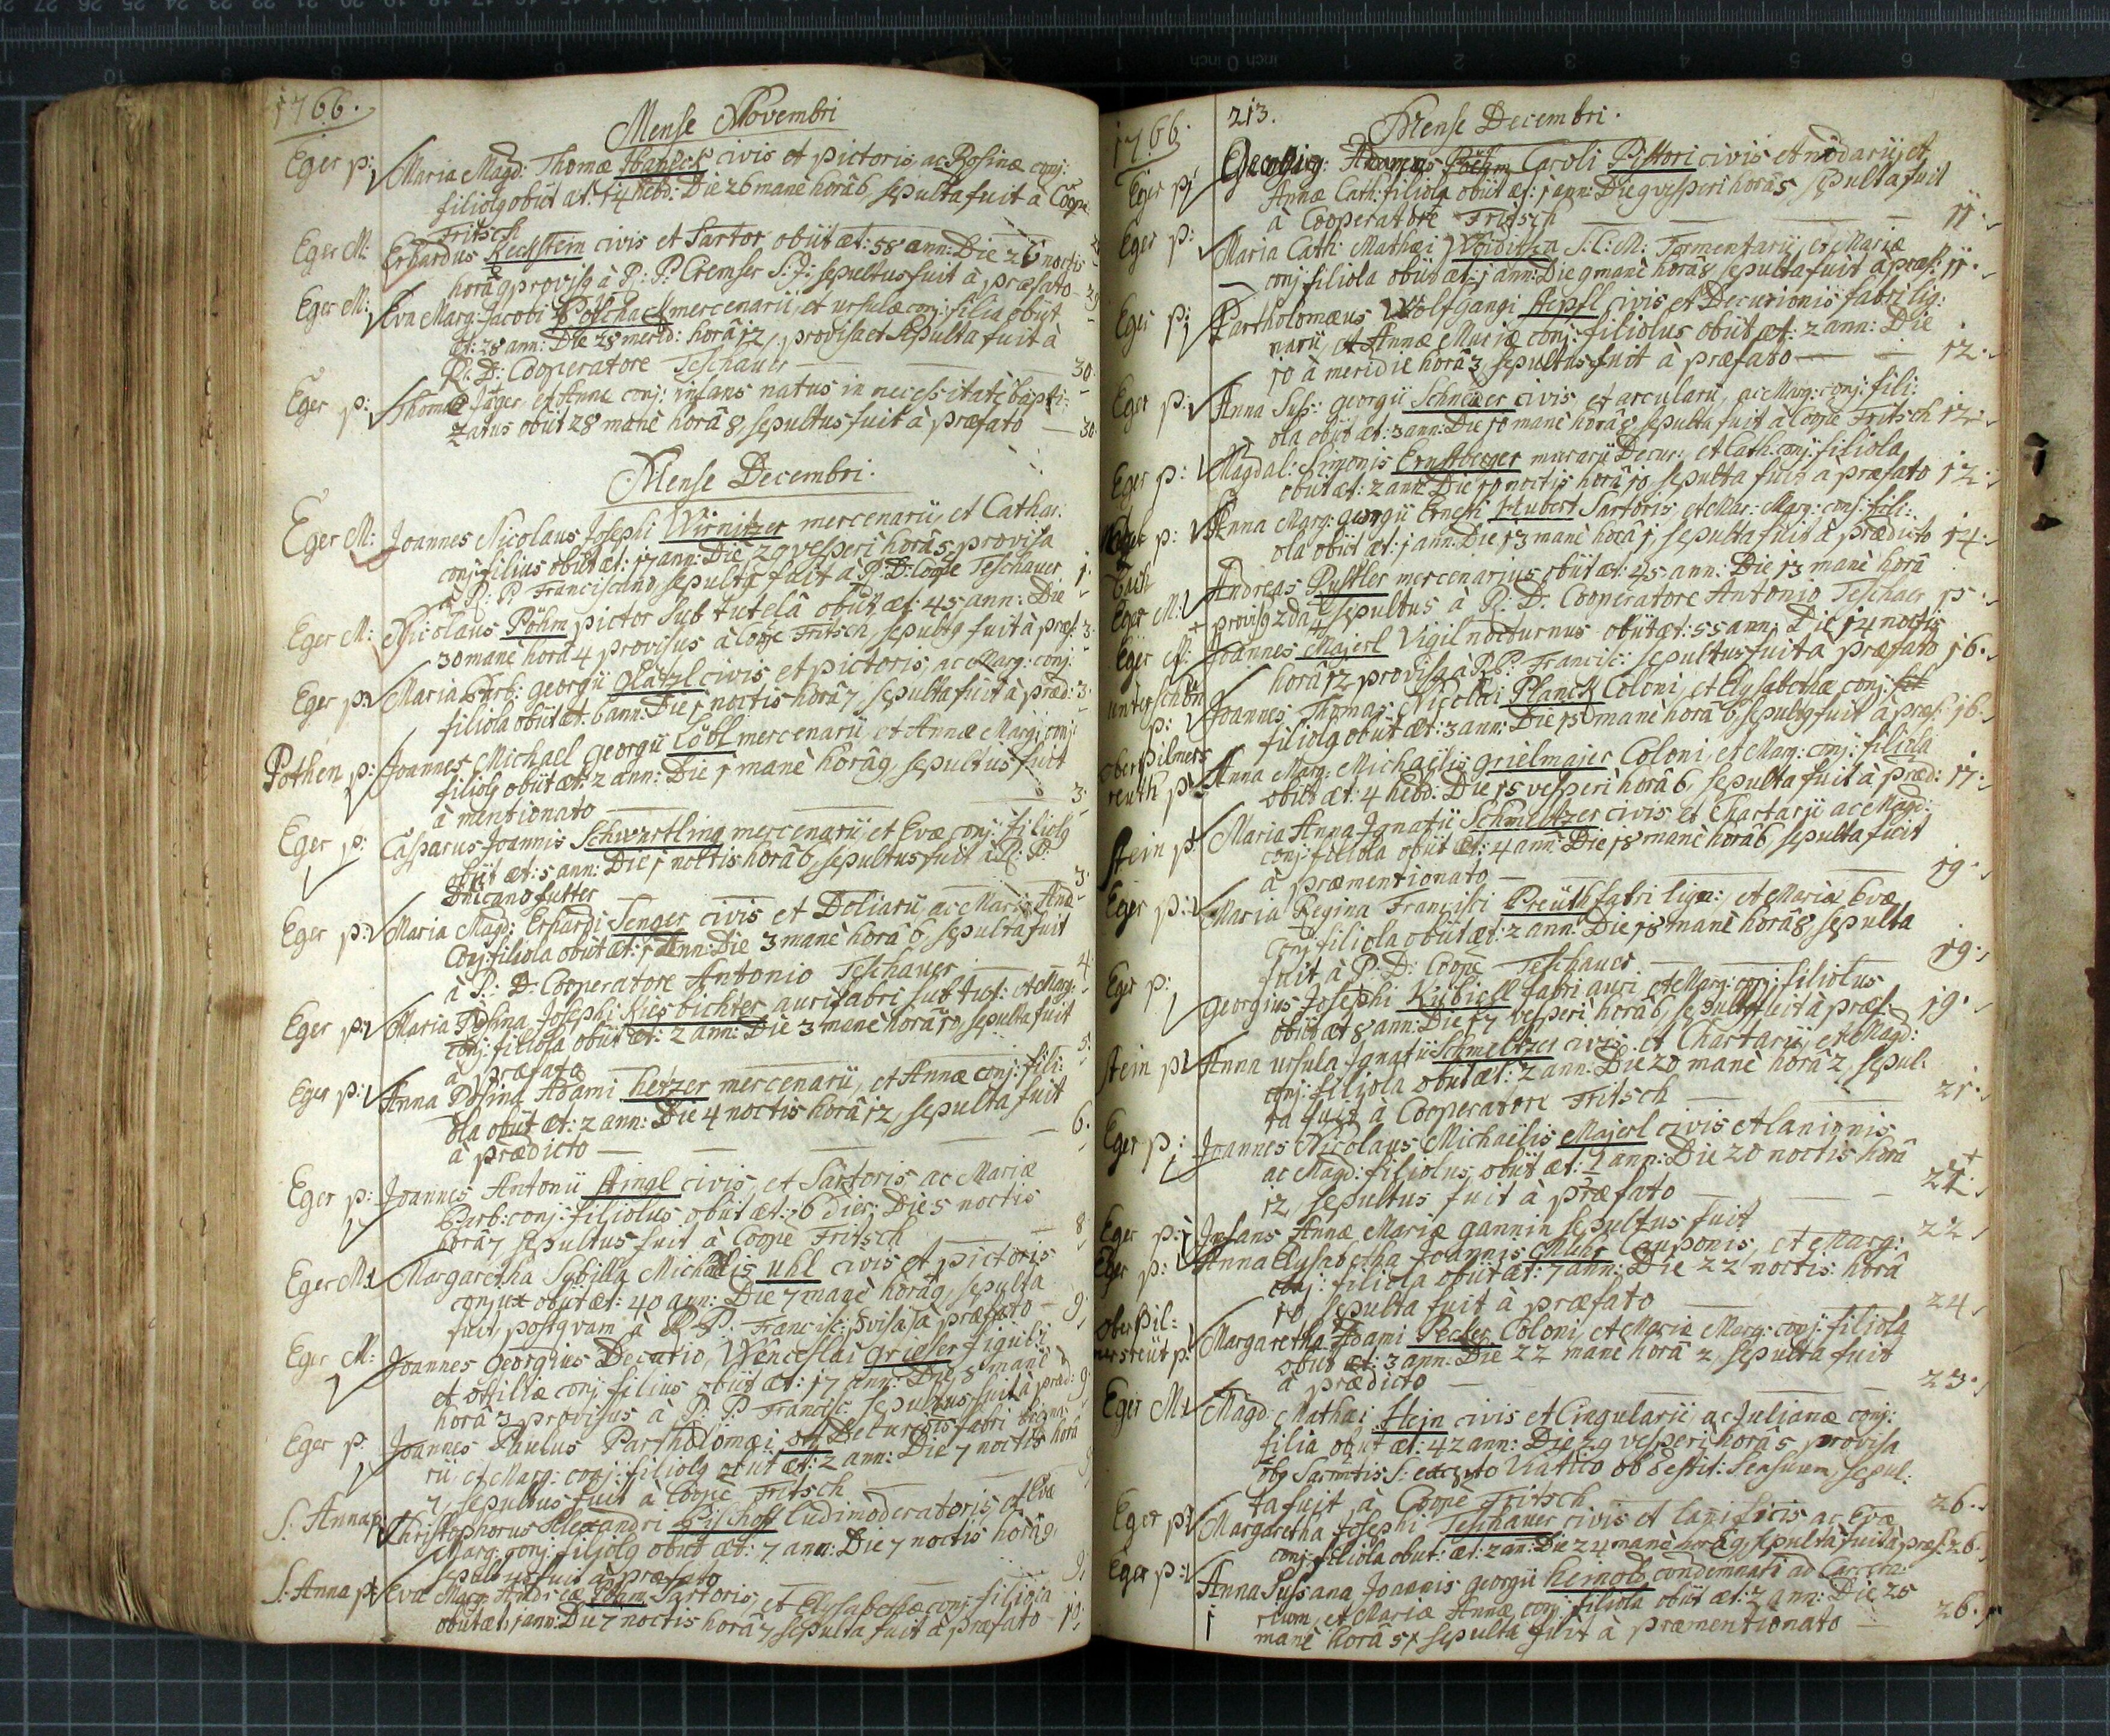 1766.
Mense Novembri
Eger p: Maria Magd: Thomæ civis et pictoris, ac Rosinæ conj:
filiola obiit æt: 14 hebd: Die 26 manè horâ 6, sepulta fuit à Coope
Fritsch
Eger M: Erhardus Reckstein civis et Sartor obiit æt: 58 ann: Die 26 noctis
horâ 9 provisus à R: P: Cremser S: J: sepultus fuit à præfato 29
Eger M: Eva Marg: Jacobi mercenarii, et ursulæ conj: filia obiit
æt: 28 ann: Die 28 merid: horâ 12, provisa et sepulta fuit à
R: D: Cooperatore Teschauer 30.
Eger p: Thomæ Jäger et Annæ conj: infans natus in necessitate bapti-
zatus obiit 28 manè horâ 8, sepultus fuit à præfato 30
Mense Decembri.
Eger M: Joannes Nicolaus Josephi Wirnitzer mercenarii, et Cathar:
conj: filius obiit æt: 17 ann: Die 29 vesperi horâ 5, provisa
à R: P: Franciscano, sepultus fuit à R: D: Coope Teschauer 1.
Eger M: Nicolaus Pöhm pictor sub tutelâ obiit æt: 45 ann: Die
30 manè horâ 4 provisus à Coope Fritsch, sepultus fuit à præf: 3.
Eger p: Maria Barb: georgii glätzl civis et pictoris, ac Marg: conj:
filiola obiit æt: 6 ann: Die 1 noctis horâ 7, sepulta fuit à præd: 3.
Pothen p: Joannes Michael georgii Löbl mercenarii, et Annæ Marg: conj:
filiolus obiit æt: 2 ann: Die 1 manè horâ 9, sepultus fuit
à mentionato 3.
Eger p: Casparus Joannis Schwartling mercenarii, et Evæ conj: filiolus
obiit æt: 5 ann: Die 1 noctis horâ 6, sepultus fuit à R: P:
3.
Eger p: Maria Magd: Erhardi Senger civis et Doliarii, ac Mariæ Annæ
conj: filiola obiit æt: 1 ann: Die 3 manè horâ 6 sepulta fuit
à R: D: Cooperatore Antonio Teschauer 4.
Eger p: Maria Rosina Josephi Kiesbichter aurifabri sub tut: et Marg:
conj: filiola obiit æt: 2 ann: Die 3 manè horâ 10, sepulta fuit
à præfato 5.
Eger p: Anna Rosina Adami hertzer mercenarii, et Annæ conj: fili:
ola obiit æt: 2 ann: Die 4 noctis horâ 12, sepulta fuit
à prædicto 6.
Eger p: Joannes Antonii Stingl civis, et Sartoris ac Mariæ
Barb: conj: filiolus obiit æt: 6 dies: Die 5 noctis
horâ 7 sepultus fuit à Coope Fritsch 8
Eger M: Margaretha Sybilla Michaëlis uhl civis et pictoris
conjux obiit æt: 40 ann: Die 7 manè horâ 9, sepulta
fuit, postquam à R: P: Francisc: pvisa, à præfato 9.
Eger M: Joannes georgius Decurio, Wenceslai grieser figuli
et ottiliæ conj: filius obiit æt: 17 ann: Die 8 manè
horâ 3 provisus à R: P: Francisc: sepultus fuit à præd: 9.
Eger p. Joannes Paulus Partholomæi ott Decurionis fabri ligna-
rii, et Marg: conj: filiolus obiit æt: 2 ann: Die 7 noctis horâ
7, sepultus fuit à Coope Fritsch 9
S: Anna p: Christophorus Alexandri Bischoff ludimoderatoris et Evæ
Marg: conj: filiolus obiit æt: 7 ann: Die 7 noctis horâ 9
sepultus fuit à præfato 9.
S: Anna p: Eva Marg: Andreæ Pöhm Sartoris, et Elysabethæ conj: filiola
obiit æt: 1 ann: Die 7 noctis horâ 7, sepulta fuit à præfato 10.
1766. 213.
Mense Decembri.
Eger p: Caroli Pistori civis et nodarii, et
Annæ Cath: filiola obiit æt: 1 ann: Die 9 vesperi horâ 5, sepulta fuit
à Cooperatore Fritsch 11.
Eger p: Maria Cath: Mathæi Woiditka S: C: M: Tormentarii, et Mariæ
conj: filiola obiit æt: 1 ann: Die 9 manè horâ 8, sepulta fuit à præf: 11.
Eger p: Partholomæus Wolfgangi stepfl civis et Decurionis fabri lig:
narii, et Annæ Mariæ conj: filiolus obiit æt: 2 ann: Die
10 à meridie horâ 3, sepultus fuit à præfato 12.
Eger p: Anna Sus: georgii Schmeizer civis et arcularii, ac Marg: conj: fili:
ola obiit æt: 3 ann: Die 10 manè horâ 8, sepulta fuit à Coope Fritsch 12.
Eger p: Magdal: Simonis Ernstberger murarii Decur:, et Cath: conj: filiola
obiit æt: 2 ann: Die 10 noctis horâ 10, sepulta fuit à præfato 12.
p: Anna Marg: georgii Ernesti Hubert Sartoris, et Mar: Marg: conj: fili:
ola obiit æt: 1 ann: Die 13 manè horâ 1, sepulta fuit à prædicto 14.
Eger M: Andreas Pustler mercenarius obiit æt: 45 ann: Die 13 manè horâ
provisus 2da, sepultus à R: D: Cooperatore Antonio Teschaer 15.
Eger M: Joannes Majerl Vigil nocturnus obiit æt: 55 ann: Die 14 noctis
horâ 12 provisus à R: P: Francisc: sepultus fuit à præfato 16.
unterschön p: Joannes Thomas Nicolai Planck Coloni, et Elysabethæ conj:
filiolus obiit æt: 3 ann: Die 15 manè horâ 6, sepultus fuit à præf: 16.
oberpilmers
reuth p: Anna Marg: Michaëlis grielmajer Coloni, et Marg: conj: filiola
obiit æt: 4 hebd: Die 15 vesperi horâ 6, sepulta fuit à præd: 17.
stein p: Maria Anna Ignatii Schmeltzer civis et Chartarii ac Magd:
conj: filiola obiit æt: 4 ann: Die 18 manè horâ 6, sepulta fuit
à præmentionato 19.
Eger p: Maria Regina Francisci Preüth fabri lign: et Mariæ Evæ
conj: filiola obiit æt: 2 ann: Die 18 manè horâ 8, sepulta
fuit à R: D: Coope Teschauer 19.
Eger p: georgius Josephi Kubiell fabri auri, et Marg: conj: filiolus
obiit æt 8 ann: Die 17 vesperi horâ 6, sepultus fuit à præf: 19.
stein p: Anna ursula Ignatii Schmeltzer civis et Chartarii, et Magd:
conj: filiola obiit æt: 2 ann: Die 20 manè horâ 2, sepul:
ta fuit à Cooperatore Fritsch 21.
Eger p: Joannes Nicolaus Michaëlis Majerl civis et lanionis
ac Magd: filiolus, obiit æt: ann: Die 20 noctis horâ
12, sepultus fuit à præfato 21.
Eger p: Infans Annæ Mariæ gannin sepultus fuit 22
Eger p: Anna Elysabetha Joannis Muhr Cauponis, et Marg:
conj: filiola obiit æt: 7 ann: Die 22 noctis horâ
10, sepulta fuit à præfato 24
oberpil-
mersreüt p: Margaretha Adami Pecher Coloni, et Mariæ Marg: conj: filiola
obiit æt: 3 ann: Die 22 manè horâ 2, sepulta fuit
à prædicto 23.
Eger M: Magd: Mathæi stein civis et Cingularii, ac Julianæ conj:
filia obiit æt: 42 ann: Die 24 vesperi horâ 5 provisa
obq Sacmtis S: excepto Viatico ob destit: sensuum, sepul:
ta fuit à Coope Fritsch 26.
Eger p: Margaretha Josephi Teschauer civis et lanificis ac Evæ
conj: filiola obiit: æt: 2 an: Die 24 manè horâ 9, sepulta fuit à præf: 26.
Eger p: Anna Susana Joannis georgii hernold condemnati ad Carcera:
rium, et Mariæ Annæ conj: filiola obiit æt: 2 ann: Die 25
manè horâ 5, sepulta fuit à præmentionato 26.